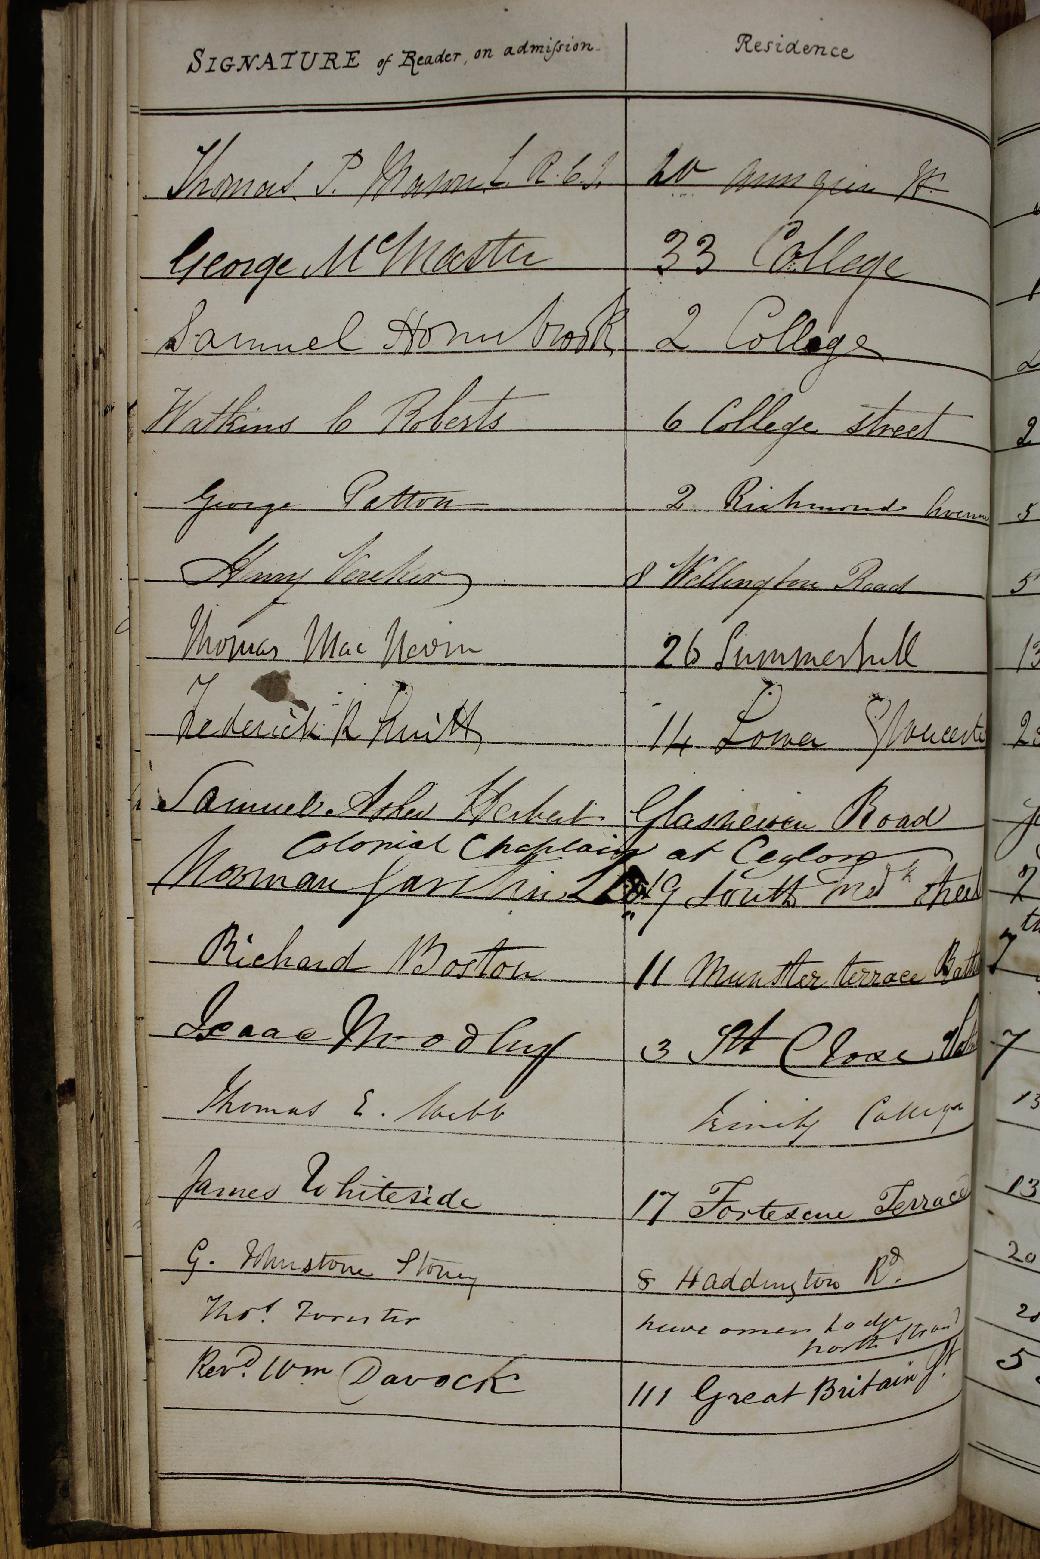 SIGNATURE of Reader, on admission. Residence
Thomas P. 20
George McMaster 33 College
Samuel Hornibrook 2 College
Watkins C Roberts 6 College street
George Patton 2 Richmond Avenue
Henry 8 Wellington Road
Thomas Mac Nevin 26 Summerhill
Frederick R 14 Lower Gloucester
Samuel Asher Herbert Glasneven Road
Colonial Chaplain at Ceylon
Norman 19 South Fredk Street
Richard Boston 11 Munster terrace
Isaac 3 Close
Thomas E. Webb Trinity College
James Whiteside 17 Fortescue Terrace
G. Johnstone Stoney 8 Haddington Rd.
Thos. Forster Newcomen Lodge
North Strand
Revd. Wm 111 Great Britain St